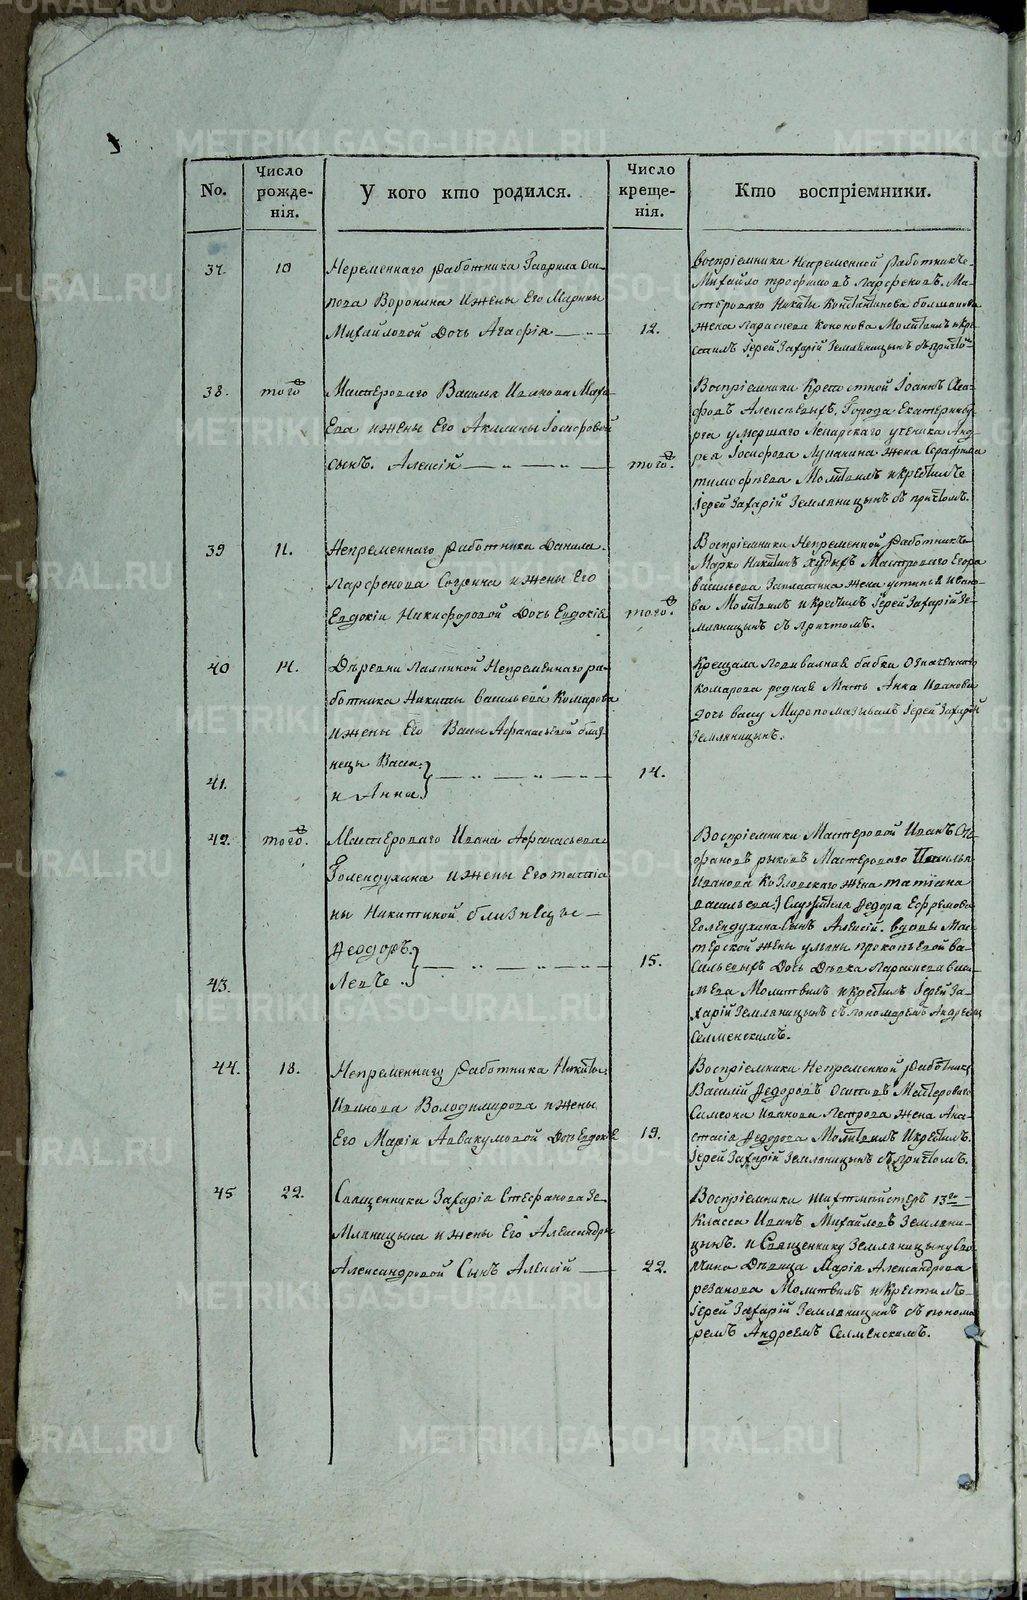 No.
Число рожде-нія.
У кого кто родился.
Число креще-нія.
Кто воспріемники.
37.
10
Непременнаго работника Гаврила Оси-
пова Воронина и жены Его Марины
Михайловой Дочь Агафія
12.
воспріемники Непременной работникъ
Михайло трофимовъ Парфеновъ. Ма-
стероваго Никиты Константинова
жена Параскева Кононова Молитвилъ и кре-
стилъ Іерей Захарій Земляницынъ съ причтом
38.
того
Мастероваго Василья Иванова
Ева и жены Его Акилины Іосифовой
сынъ. Алексій
того.
Воспріемники Крепостной Іоаннъ Ага-
фовъ Алексѣевыхъ, Города Екатеринбу-
рга умершаго Лекарскаго ученика Анд-
рея Іосифова Лунакина жена Серафима
тимофѣева Молитвилъ и крестилъ
Іерей Захарій Земляницынъ съ причтомъ.
39
11.
Непременнаго работника Данила.
Парфенова и жены Его
Евдокіи Никифоровой Дочь Евдокія
того.
Воспріемники Непременной работникъ
Марко Никитинъ Мастероваго Егора
васильева жена устинья ивано-
ва Молитвилъ и крестилъ Іерей Захарій Зе-
мляницынъ съ причтомъ.
40
14.
Деревни Непременнаго ра-
ботника Никиты васильева Комарова
и жены Его Васы Афанасьевой близ-
нецы Васа.
41.
и Анна
14.
Крещала бабка Означеннаго
комарова родная Мать Анна Иванова
дочь васу Миропомазывалъ Іерей Захарій
Земляницынъ.
42.
того.
Мастероваго Ивана Афанасьева
Голендухина и жены Его татіа-
ны Никитиной близнецы
Феодоръ.
43.
Левъ.
15.
Воспріемники Мастеровой Иванъ Сте-
фановъ рыковъ Мастероваго Василья
Иванова Козловскаго жена татіана
васильева.) Федора Ефремова
Голендухина Сынъ Алексій. вдовы Мас-
терской жены ульяны прокопьевой ва-
сильевыхъ Дочь Девка Параскева васи-
льева Молитвилъ и крестилъ Іерей За-
харій Земляницынъ съ пономаремъ Андреемъ
Селменскимъ.
44.
18.
Непременнаго Работника Никиты
Иванова Володимирова и жены
Его Маріи Аввакумовой Дочь Евдокія
19.
Воспріемники Непременной работникъ
Василій Федоровъ Осиповъ Мастероваго
Симеона Иванова Петрова жена Ана-
стасія Федорова Молитвилъ и Крестилъ.
Іерей Захарій Земляницынъ съ причтомъ.
45
22.
Священника Захарія Стефанова Зе-
мляницына и жены Его Александры
Александровой Сынъ Алексій
22.
Воспріемники шихтмейстеръ 13го
Класса Иванъ Михайловъ Земляни-
цынъ. и Священнику Земляницыну
Девица Марія Александрова
резанова Молитвилъ и Крестилъ
Іерей Захарій Земляницынъ съ понома-
ремъ Андреемъ Селменскимъ.
METRIKI.GASO-URAL.RU